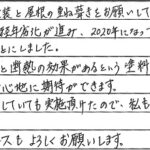 装と屋根の重ね葺きをお願いして
経年劣化が進み、2020年になっ
ことにしました。
と断熱の効果があるという塗料
心地に期待ができます。
していても実施頂けたので、私も
スもよろしくお願いします。